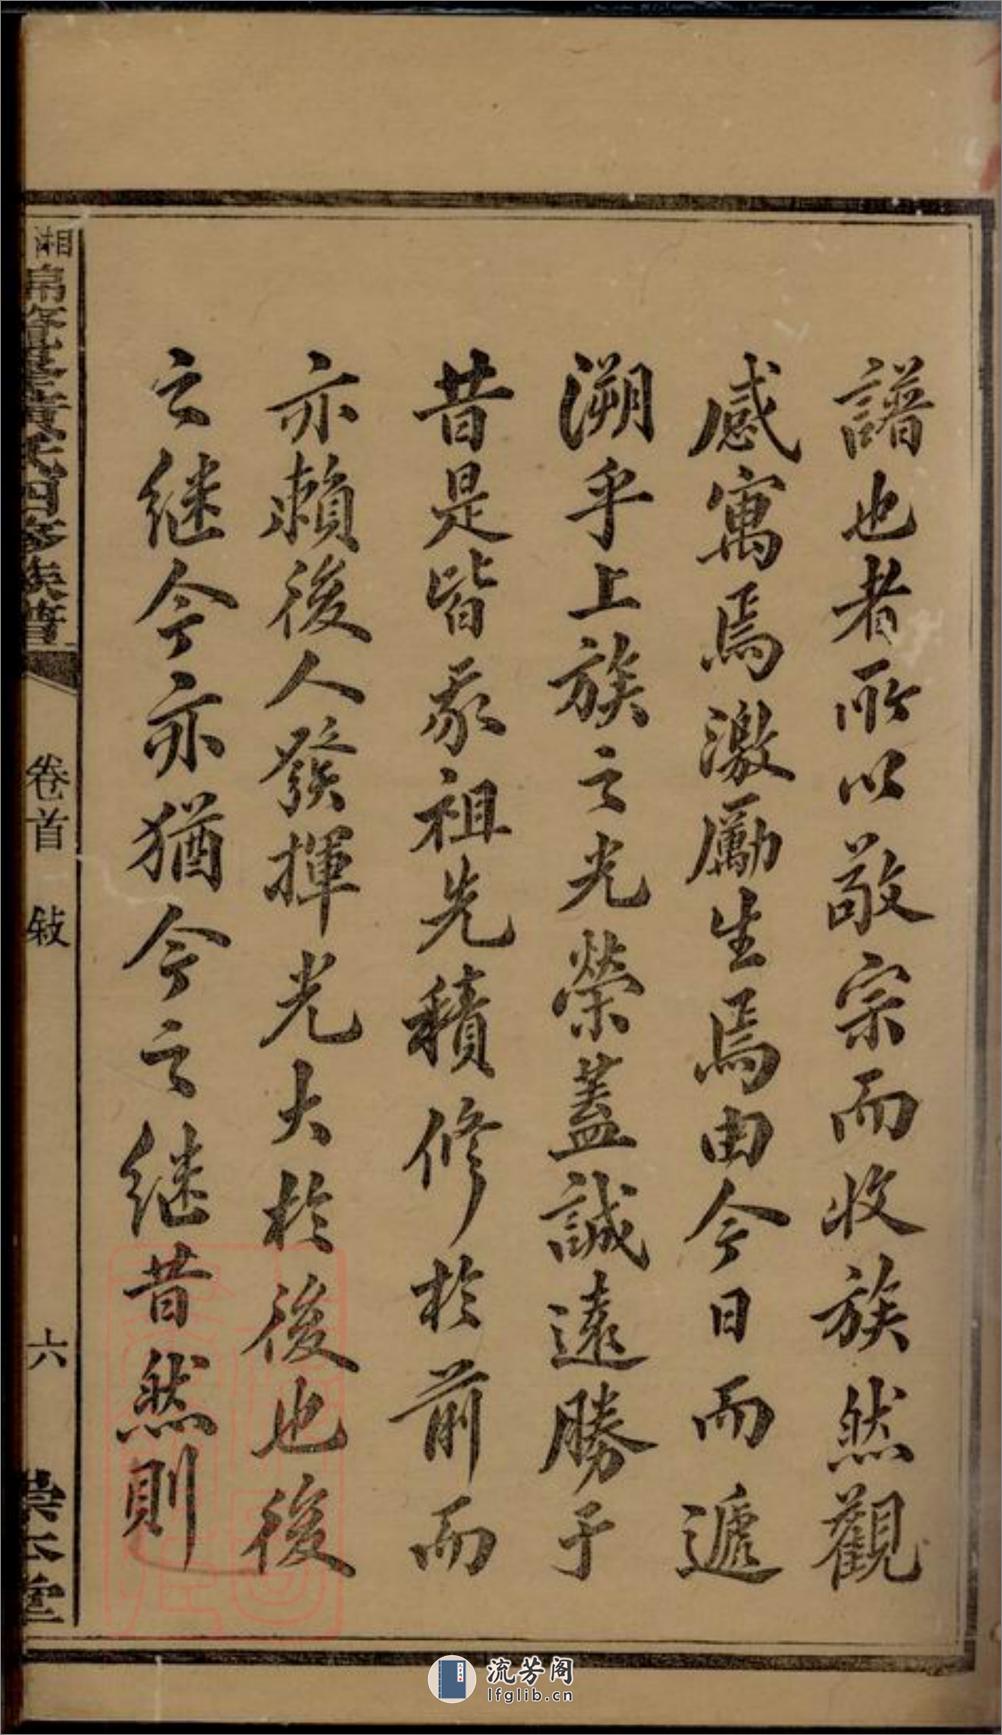 譜也者所以敬宗而收族然觀
感寓焉激厲生焉由今日而遞
溯乎上族之光榮蓋誠遠勝于
昔是皆我祖先積修於前而
亦賴後人發揮光大於後也後
之继今亦猶今之继昔然則
湘
黃氏四修族譜
卷首
敍
六
崇 堂
流芳阁
lfglib.cn